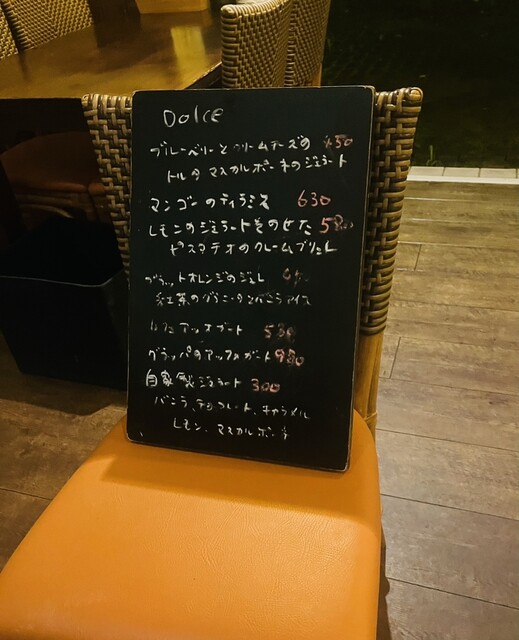 Dolce
ブルーベリーとクリームチーズの
トルタ マスカルポーネのジェラート
マンゴーのティラミス 630
レモンのジェラートをのせた
ピスタチオのクレームブリュレ
ブラットオレンジのジュレ
紅茶のグラニータとバニラアイス
アッフォガート 530
グラッパのアッフォガート 930
自家製ジェラート 300
バニラ、チョコレート、キャラメル
レモン、マスカルポーネ